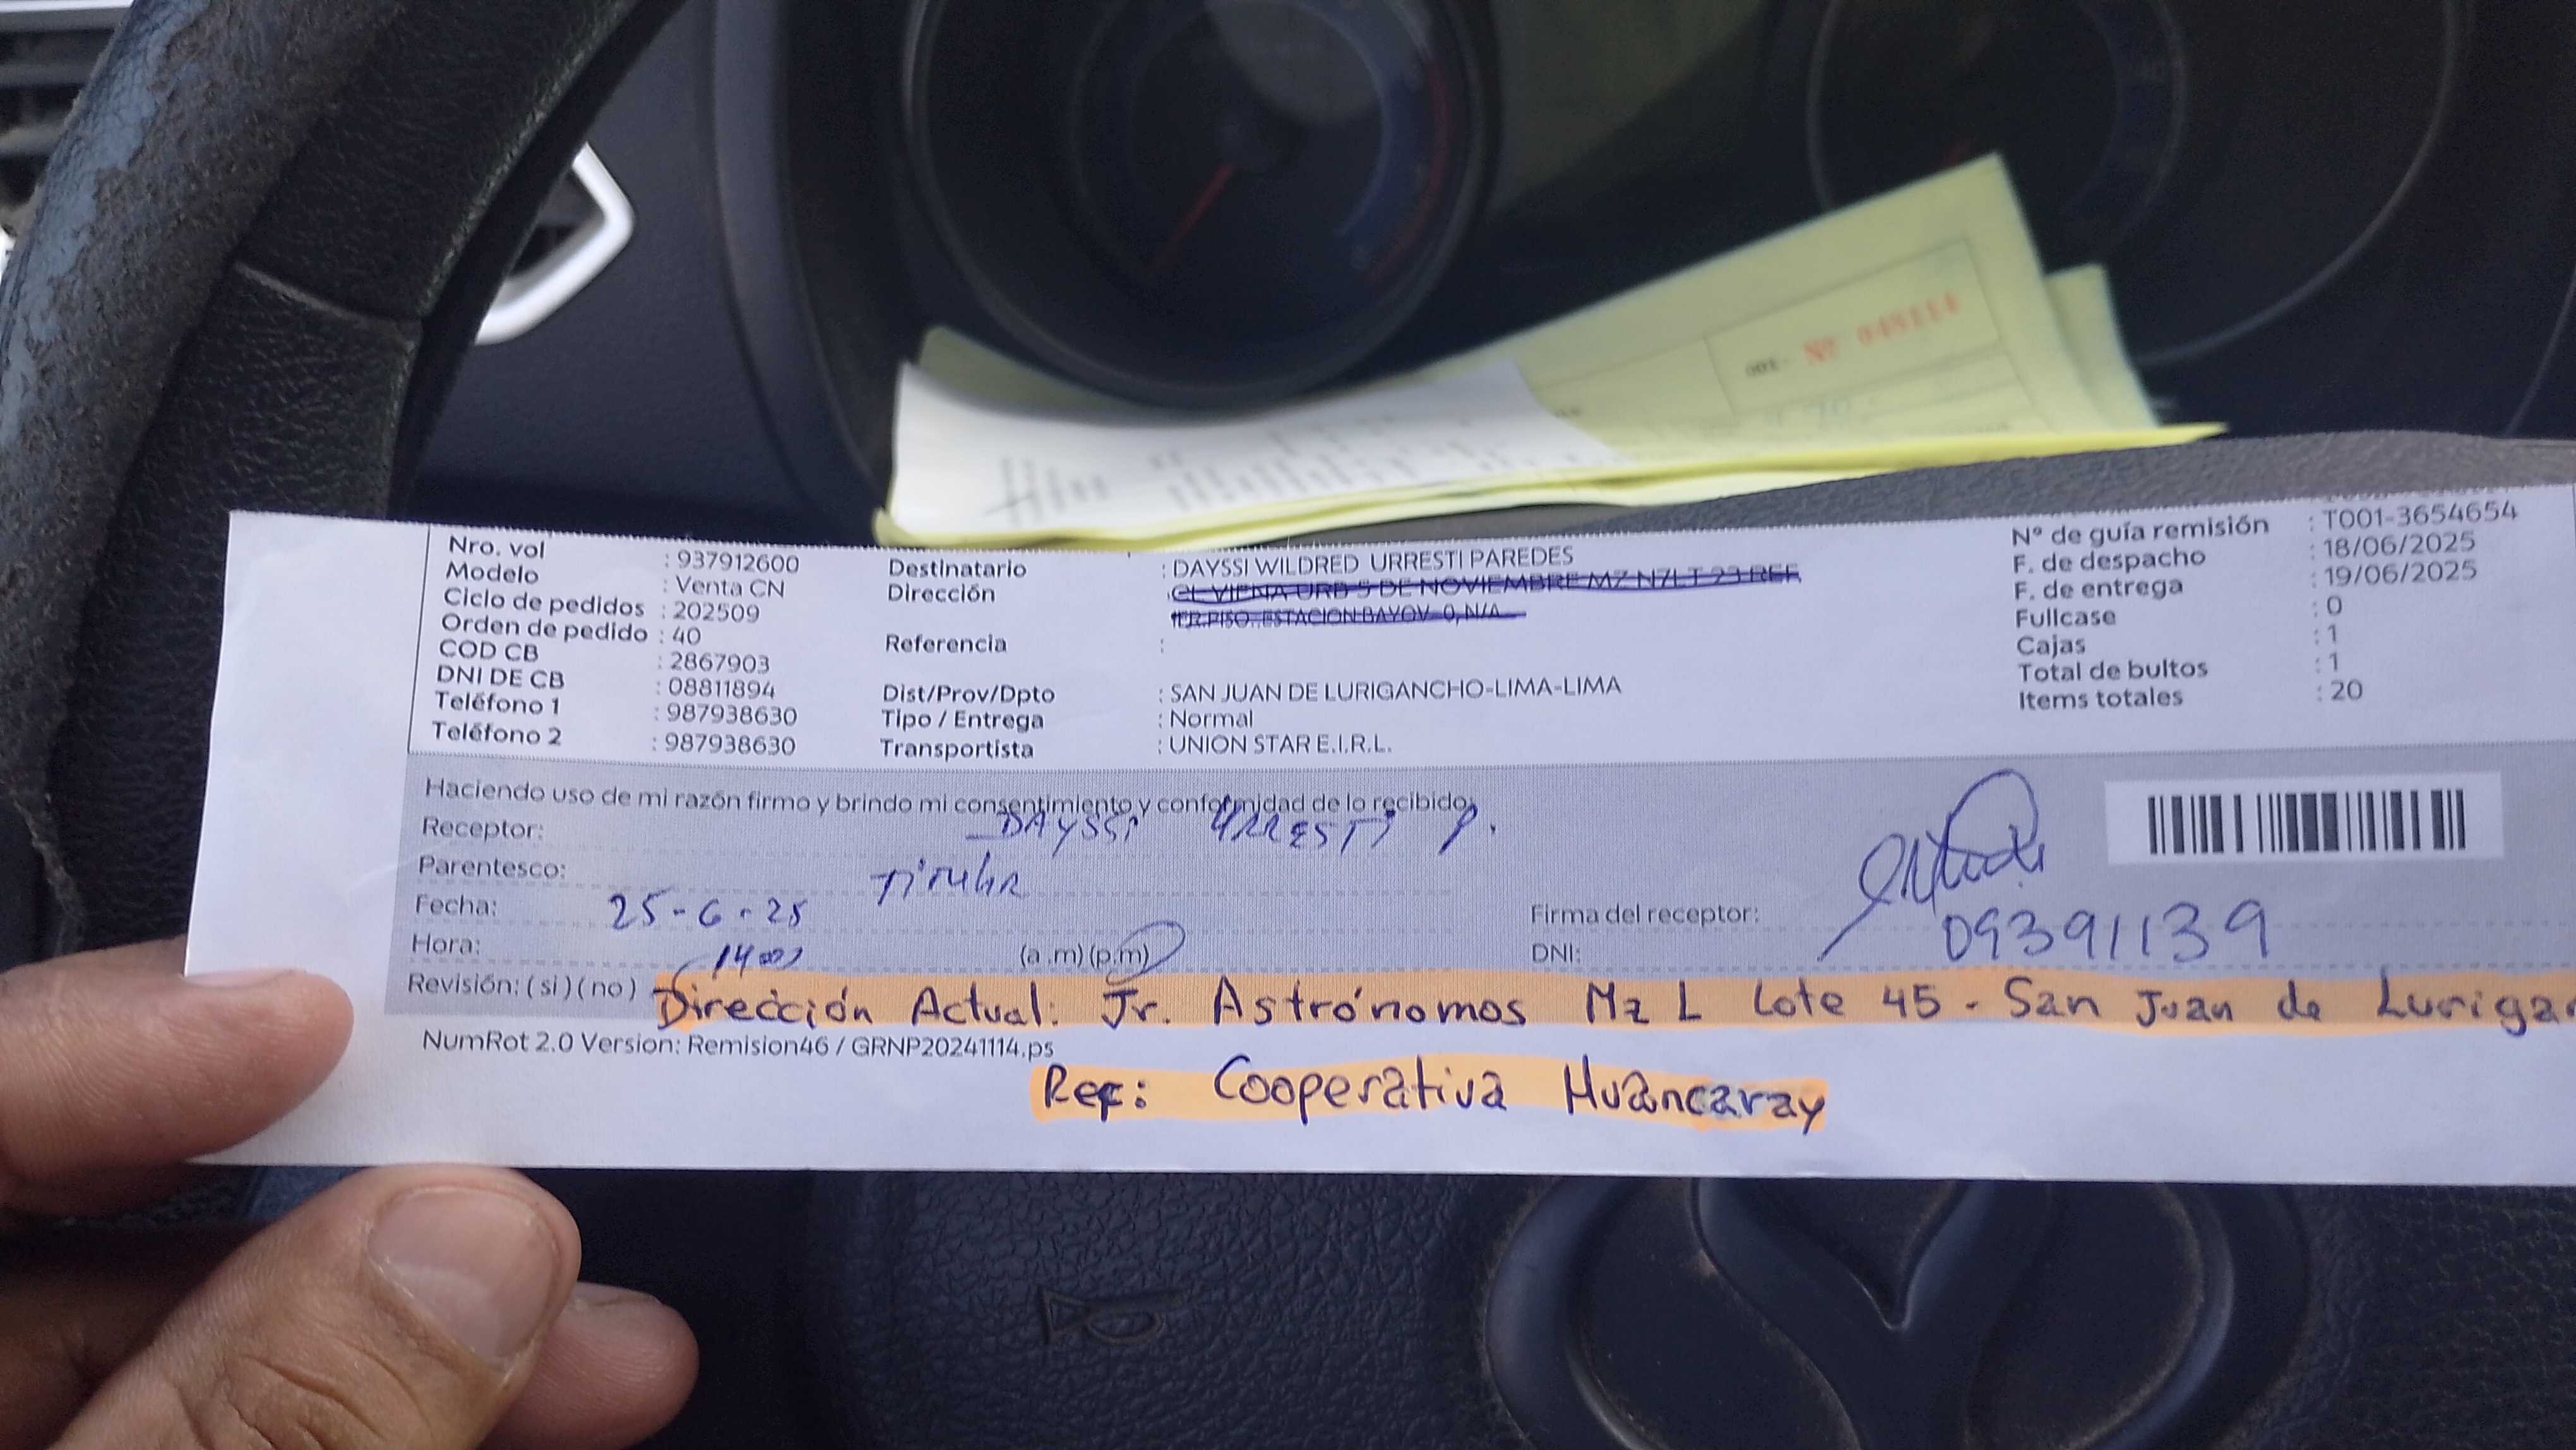 001- Nº 048114
Nro. vol : 937912600
Modelo : Venta CN
Ciclo de pedidos : 202509
Orden de pedido : 40
COD CB : 2867903
DNI DE CB : 08811894
Teléfono 1 : 987938630
Teléfono 2 : 987938630
Destinatario : DAYSSI WILDRED URRESTI PAREDES
Dirección : CL VIENA URB 5 DE NOVIEMBRE MZ N7LT 23 REF.
1ER.PISO..ESTACION BAYOV 0, N/A
Referencia :
Dist/Prov/Dpto : SAN JUAN DE LURIGANCHO-LIMA-LIMA
Tipo / Entrega : Normal
Transportista : UNION STAR E.I.R.L.
Nº de guía remisión : T001-3654654
F. de despacho : 18/06/2025
F. de entrega : 19/06/2025
Fullcase : 0
Cajas : 1
Total de bultos : 1
Items totales : 20
Haciendo uso de mi razón firmo y brindo mi consentimiento y conformidad de lo recibido.
Receptor: DAYSSI URRESTI P.
Parentesco: TiTulaR
Fecha: 25-6-25
Hora: 14 00 (a.m)(p.m)
Firma del receptor:
DNI: 09391139
Revisión: (si)(no)
Dirección Actual: Jr. Astrónomos Mz L Lote 45 - San Juan de Luriga
NumRot 2.0 Version: Remision46 / GRNP20241114.ps
Ref: Cooperativa Huancaray